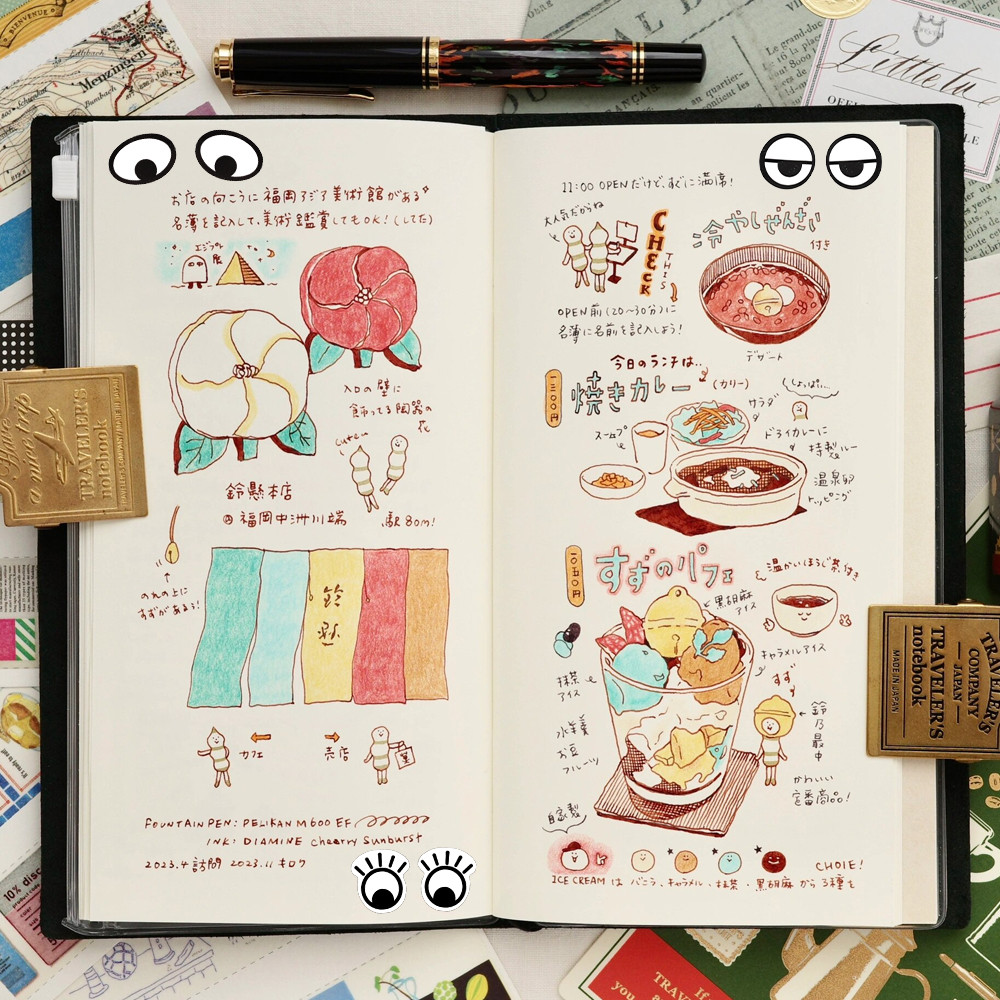 お店の向こうに福岡アジア美術館がある
名簿を記入して、美術鑑賞してもOK!(してた)
エジプト
展
入口の壁に
飾ってる陶器の
花
cute~
鈴懸本店
福岡中洲川端 駅80m!
のれんの上に
すずがある!
鈴
懸
カフェ
売店
FOUNTAIN PEN: PELIKAN M600 EF
INK: DIAMINE cheerry Sunburst
2023.4訪問 2023.11キロク
11:00 OPENだけど、すぐに満席!
大人気だからね
CHECK
THIS
OPEN前(20~30分)に
名簿に名前を記入しよう!
冷やしぜんざい
付き
デザート
今日のランチは..
一三〇〇円
焼きカレー
(カリー)
サラダ
スープ
ドライカレーに
特製ルー
温泉卵
トッピング
一〇五〇円
すずのパフェ
温かいほうじ茶付き
黒胡麻
アイス
キャラメルアイス
抹茶
アイス
すず
鈴乃最中
水羊羹
お豆
フルーツ
かわいい
定番商品!
自家製
CHOIE!
ICE CREAM は バニラ、キャラメル、抹茶・黒胡麻 から 3種を
BIENVENUE
Edlibach
Menzingen
Bumbach
FRANÇAIS
Le grand-duc
Little
TRAVELER'S
notebook
TRAVELER'S
COMPANY
JAPAN
TRAVELER'S
notebook
MADE IN JAPAN
10% disc